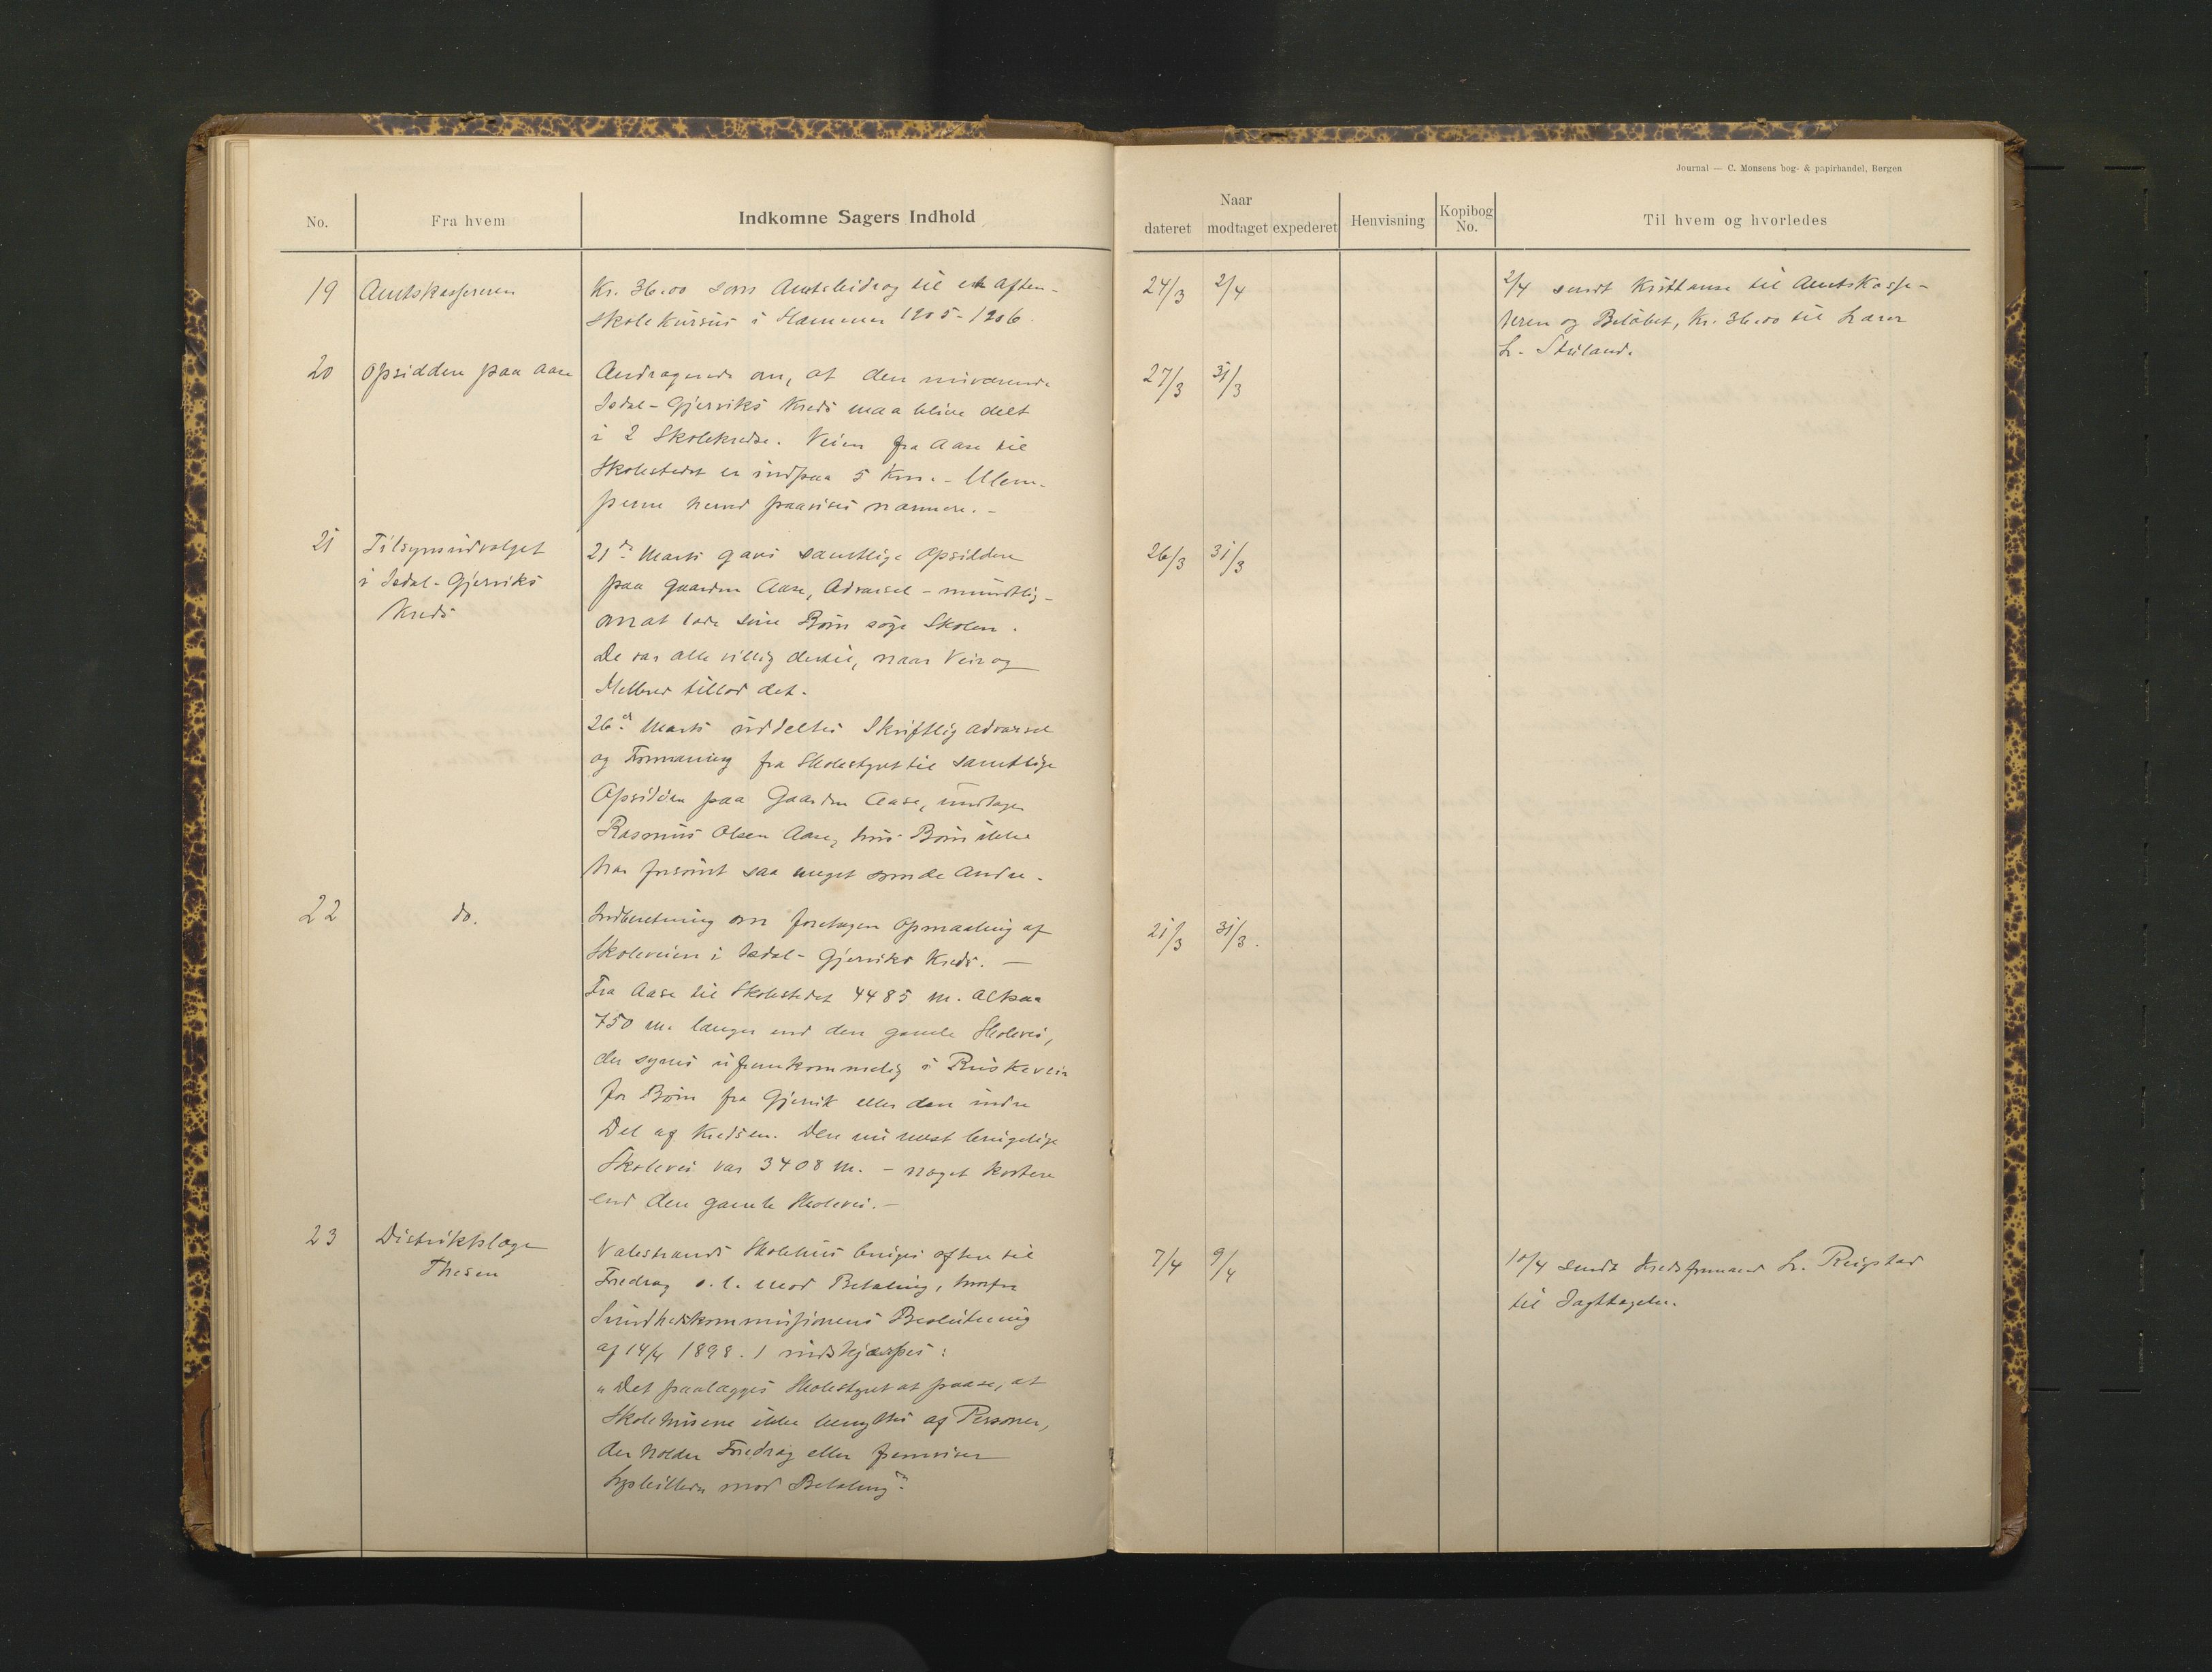 Journal — C. Monsens bog- & papirhandel, Bergen
No.
Fra hvem
Indkomne Sagers Indhold
Naar
dateret modtaget expederet
Henvisning
Kopibog No.
Til hvem og hvorledes
19 Amtskassereren
Kr. 36.00 som Amtsbidrag til et Aften-
skolekursus i Hammer 1905-1906.
24/3 2/4
2/4 sendt Kvittanse til Amtskasse-
reren og Beløbet, Kr. 36.00 til Lærer
L. Stuland.
20 Opsiddere paa Aase
Andragende om, at den nuværende
Isdal-Gjerviks Kreds maa blive delt
i 2 Skolekredse. Veien fra Aase til
Skolestedet er indpaa 5 Km. - Ulem-
perne herved paavises nærmere. -
27/3 31/3
21 Tilsynsudvalget
i Isdal-Gjerviks
Kreds
21de Marts gaves samtlige Opsiddere
paa Gaarden Aase, Advarsel - mundtlig -
om at lade sine Børn søge Skolen.
De var alle villig dertil, naar Veir og
Helbred tillod det.
26de Marts uddeltes Skriftlig Advarsel
og Formaning fra Skolestyret til samtlige
Opsiddere paa Gaarden Aase, undtagen
Rasmus Olsen Aase, hvis Børn ikke
har forsømt saa meget som de Andre.
26/3 31/3
22 do.
Indberetning om foretagen Opmaaling af
Skoleveien i Isdal-Gjerviks Kreds. —
Fra Aase til Skolestedet 4485 m. altsaa
750 m. længer end den gamle Skolevei,
der synes ufremkommelig i Ruskeveir
for Børn fra Gjervik eller den indre
Del af Kredsen. Den nu mest brugelige
Skolevei var 3408 m. - noget kortere
end den gamle Skolevei. -
21/3 31/3.
23 Distriktslæge
Thesen
Valestrands Skolehus bruges oftere til
Foredrag o. l. mod Betaling, hvorfor
Sundhedskommissionens Beslutning
af 14/4 1898. 1 indskjærpes:
„Det paalægges Skolestyret at paase, at
Skolehusene ikke benyttes af Personer,
der holder Foredrag eller fremviser
Lysbilleder mod Betaling."
7/4 9/4
10/4 sendt Kredsformand L. Reigstad
til Iagttagelse.